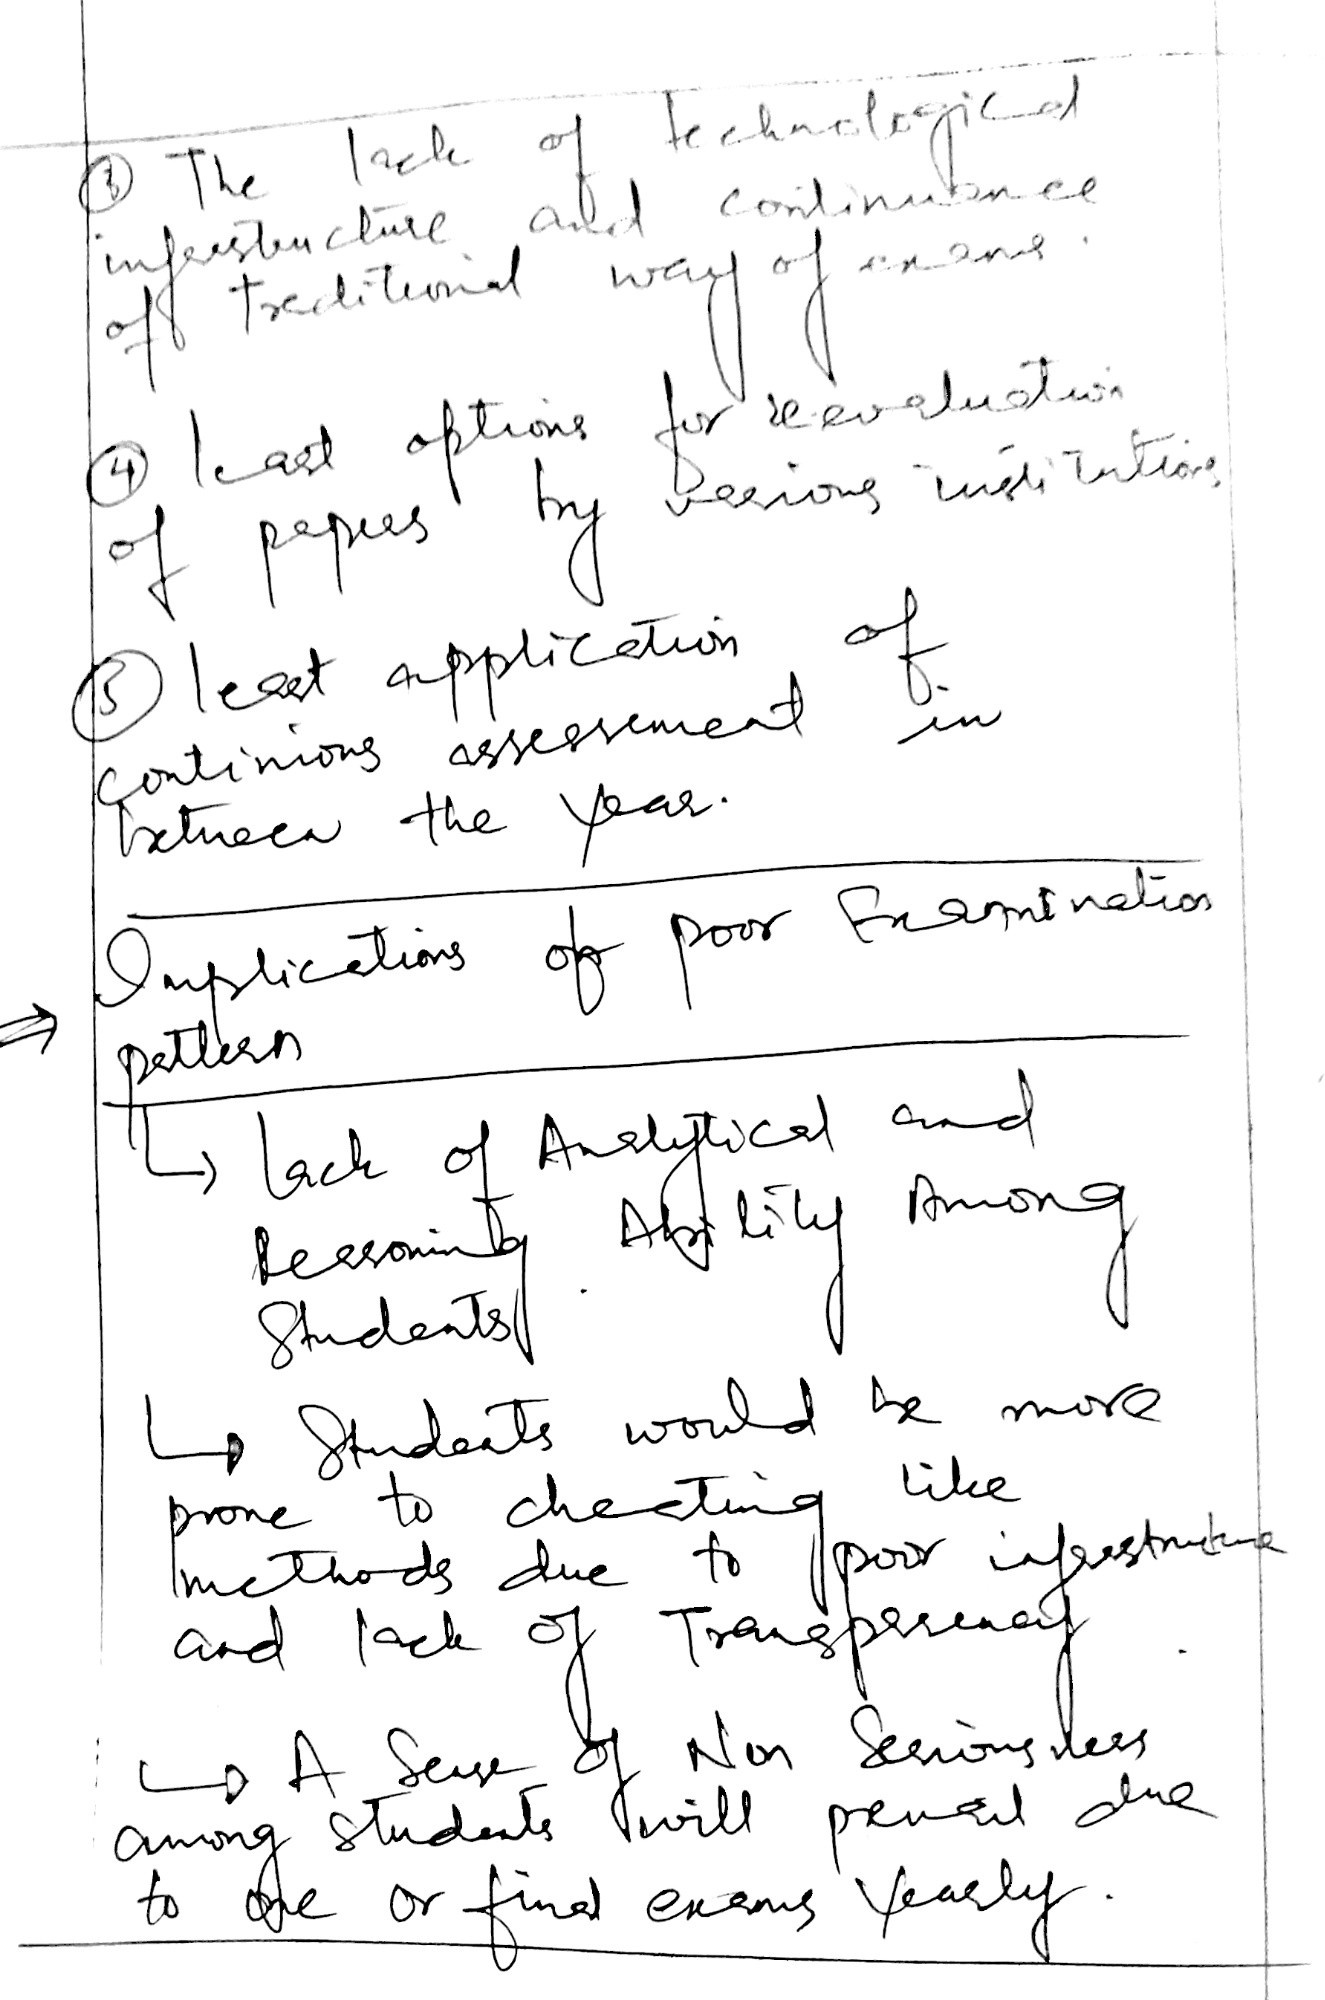 ③ The lack of technological
infrastructure and continuance
of traditional way of exams.
④ least options for reevaluation
of papers by various institutions
⑤ least application of
continious assessment in
between the year.
Implications of poor Examination
⇒ pattern
↳ lack of Analytical and
Reasoning Ability Among
Students
↳ Students would be more
prone to cheating like
methods due to poor infrastructure
and lack of Transparency
↳ A Sense of Non Seriousness
among students will prevail due
to one or final exams yearly.